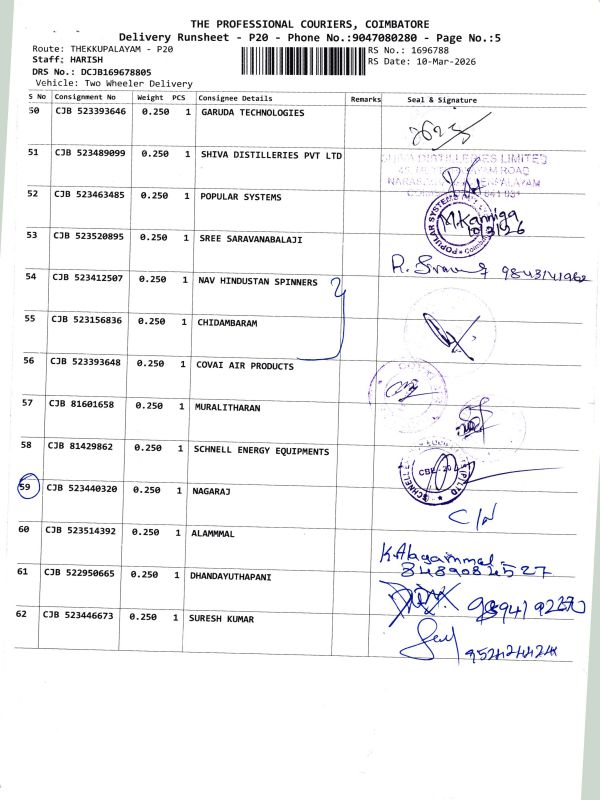 THE PROFESSIONAL COURIERS, COIMBATORE
Delivery Runsheet - P20 - Phone No.:9047080280 - Page No.:5
Route: THEKKUPALAYAM - P20
RS No.: 1696788
Staff: HARISH
RS Date: 10-Mar-2026
DRS No.: DCJB169678805
Vehicle: Two Wheeler Delivery
S No Consignment No Weight PCS Consignee Details Remarks Seal & Signature
50 CJB 523393646 0.250 1 GARUDA TECHNOLOGIES
51 CJB 523489099 0.250 1 SHIVA DISTILLERIES PVT LTD
SHIVA DISTILLERIES LIMITED
52 CJB 523463485 0.250 1 POPULAR SYSTEMS
M.Kanniga
10/3/26
53 CJB 523520895 0.250 1 SREE SARAVANABALAJI
54 CJB 523412507 0.250 1 NAV HINDUSTAN SPINNERS
55 CJB 523156836 0.250 1 CHIDAMBARAM
56 CJB 523393648 0.250 1 COVAI AIR PRODUCTS
57 CJB 81601658 0.250 1 MURALITHARAN
58 CJB 81429862 0.250 1 SCHNELL ENERGY EQUIPMENTS
CBE - 20
59 CJB 523440320 0.250 1 NAGARAJ
C/N
60 CJB 523514392 0.250 1 ALAMMMAL
K.Alagammal.
8489084527
61 CJB 522950665 0.250 1 DHANDAYUTHAPANI
62 CJB 523446673 0.250 1 SURESH KUMAR